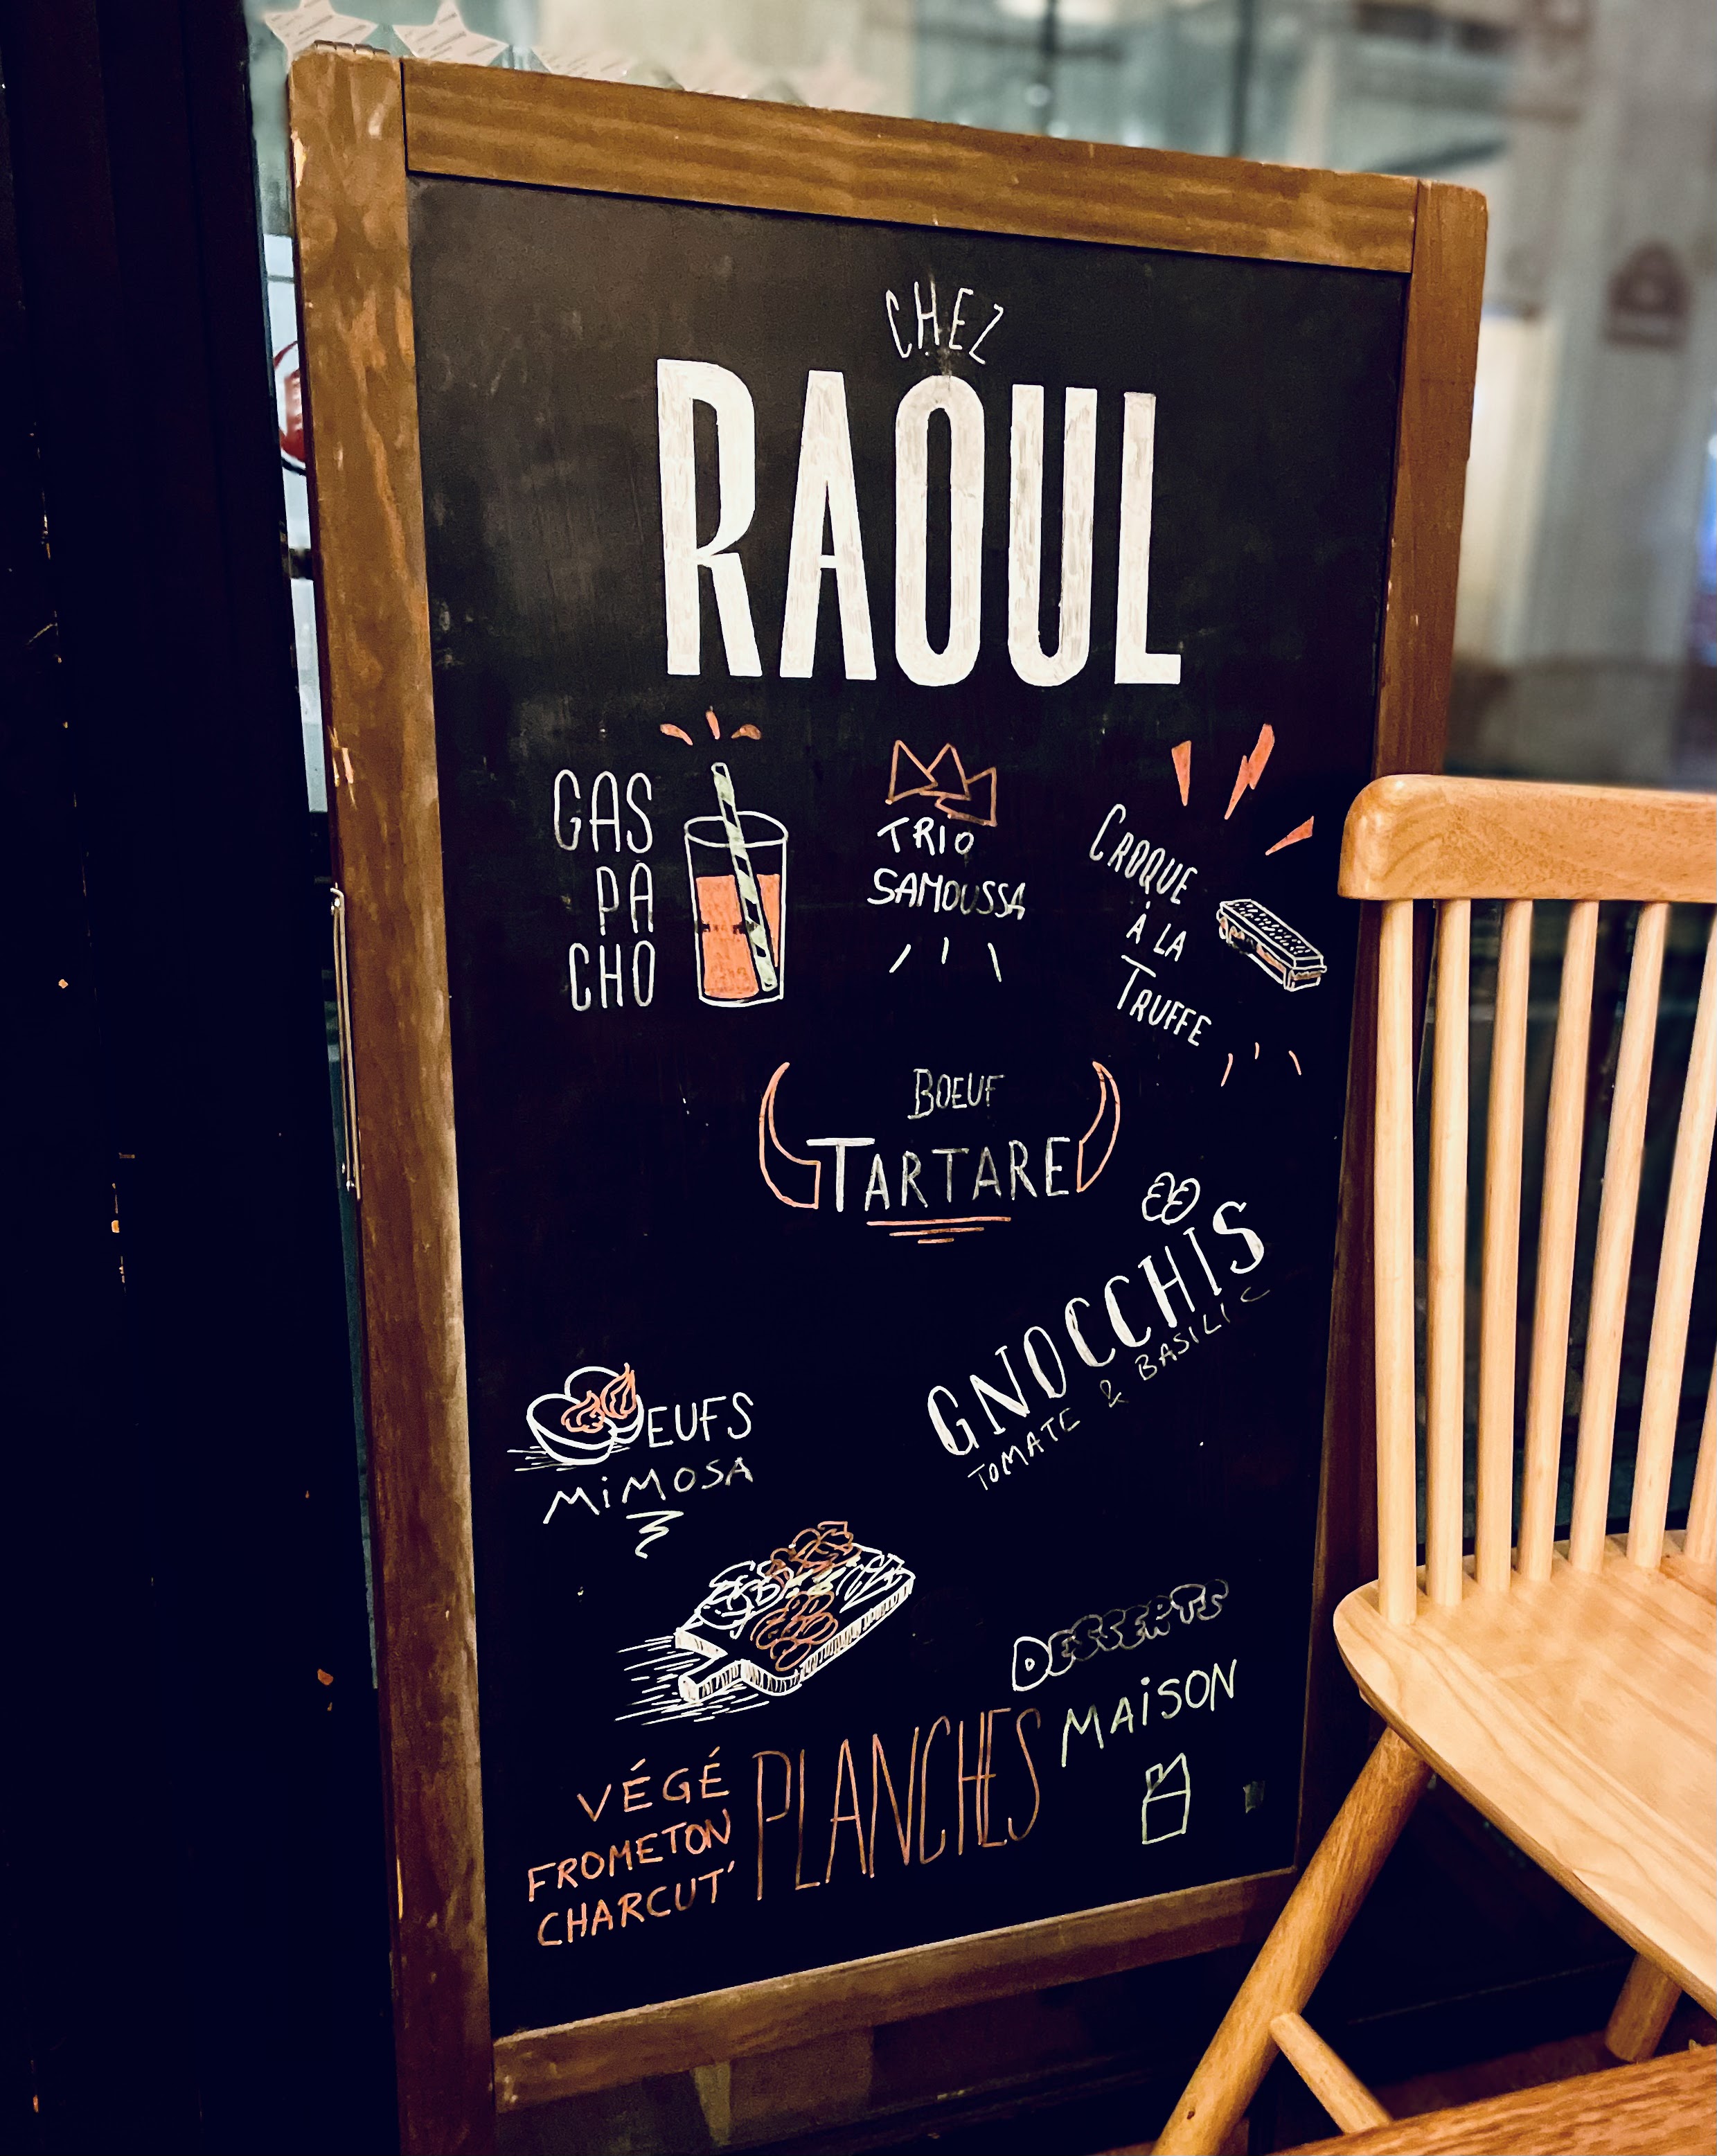 CHEZ
RAOUL
GAS
PA
CHO
TRIO
SAMOUSSA
CROQUE
À LA
TRUFFE
BOEUF
TARTARE
GNOCCHIS
TOMATE & BASILIC
OEUFS
MiMOSA
DESSERTS
MAiSON
VÉGÉ
FROMETON
CHARCUT'
PLANCHES